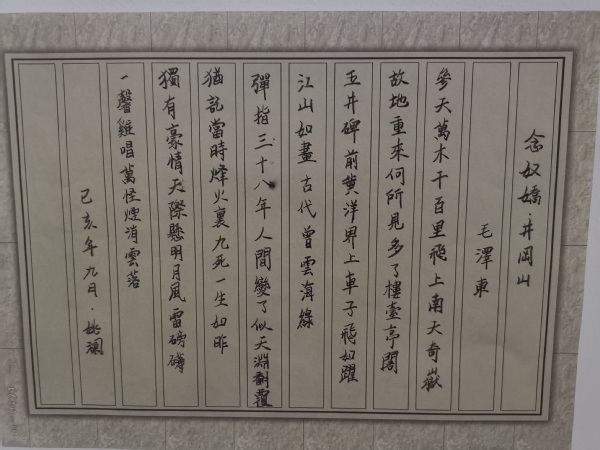 念奴嬌·井岡山
毛澤東
參天萬木千百里飛上南天奇嶽
故地重來何所見多了樓臺亭閣
五井碑前黄洋界上車子飛如躍
江山如畫古代曾雲海綠
彈指三十八年人間變了似天淵翻覆
猶記當時烽火裏九死一生如昨
獨有豪情天際懸明月風雷磅礴
一聲雞唱萬怪煙消雲落
己亥年九日·姚瀾